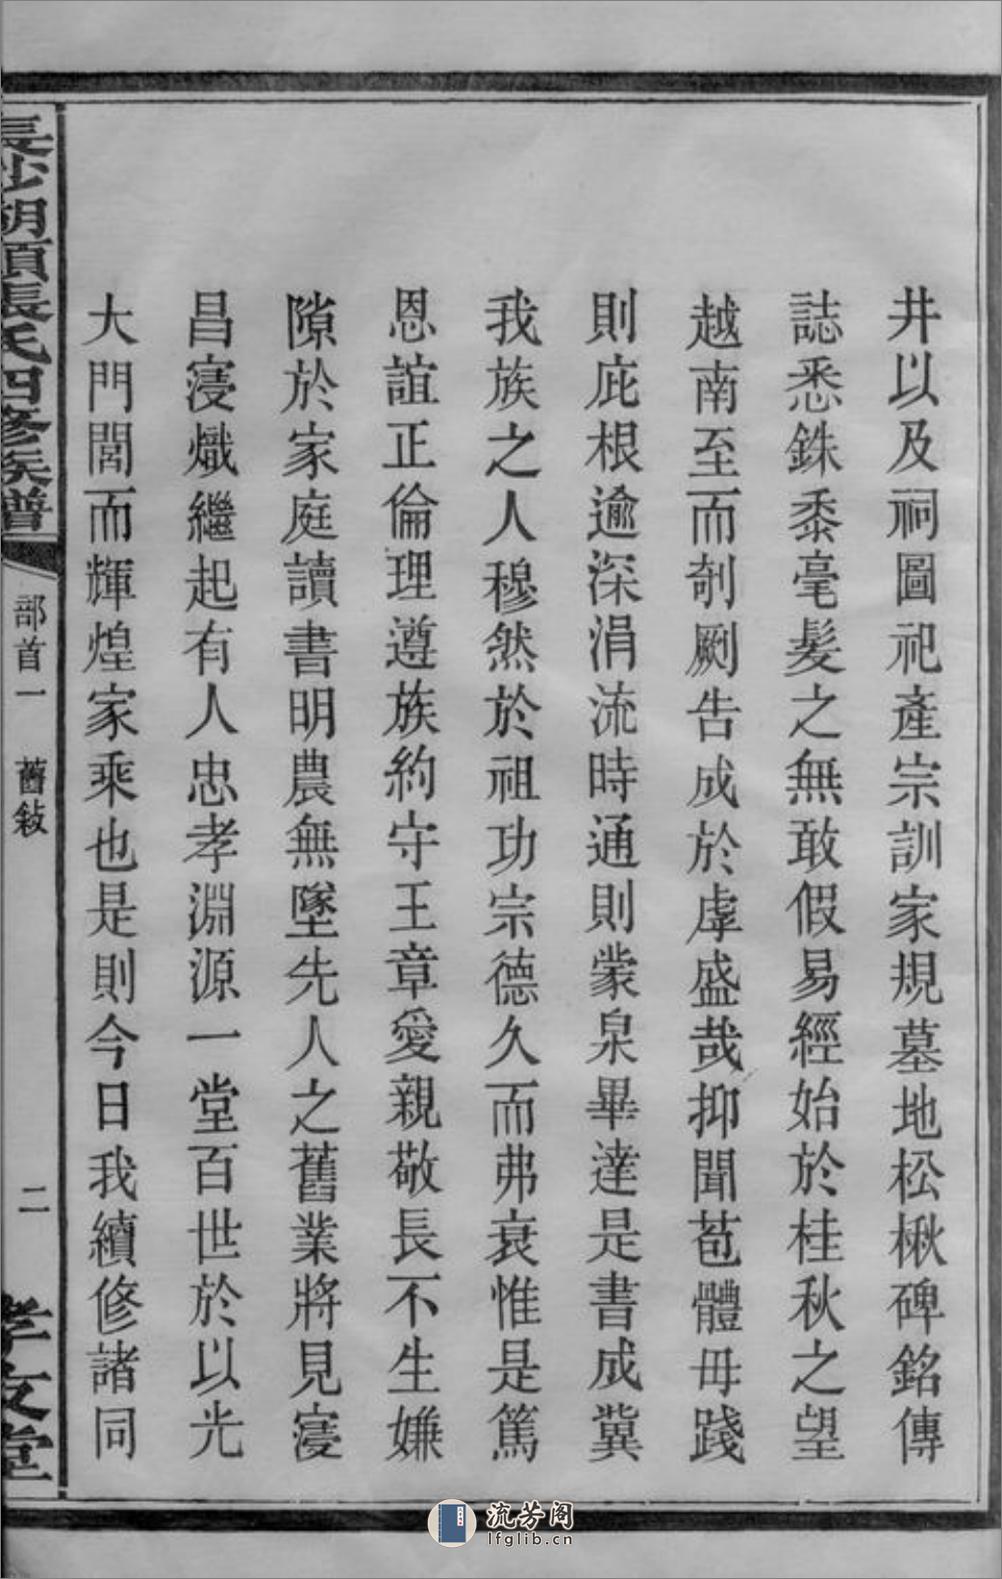 井以及祠圖祀產宗訓家規墓地松楸碑銘傳
誌悉銖黍毫髮之無敢假易經始於桂秋之望
越南至而剞劂告成於虖盛哉抑聞苞體毋踐
則庇根逾深涓流時通則蒙泉畢達是書成冀
我族之人穆然於祖功宗德久而弗衰惟是篤
恩誼正倫理遵族約守王章愛親敬長不生嫌
隙於家庭讀書明農無墜先人之舊業將見寖
昌寖熾繼起有人忠孝淵源一堂百世於以光
大門閭而輝煌家乘也是則今日我續修諸同
長沙胡頭張氏四修族譜
部首一 舊敍
二
孝友堂
流芳阁
lfglib.cn